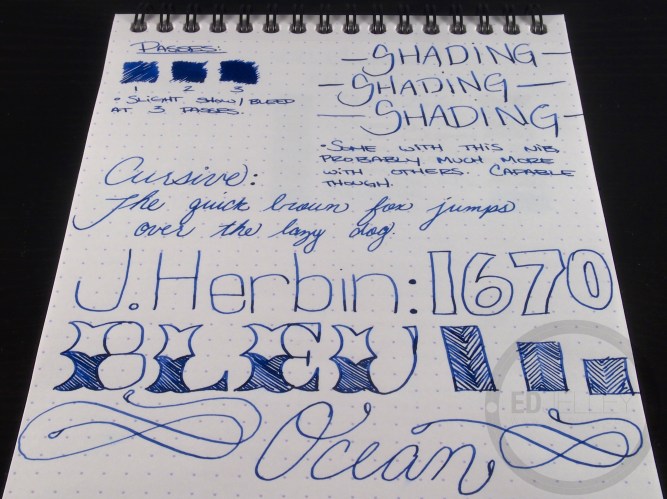 PASSES:
1 2 3
• SLIGHT SHOW/BLEED
AT 3 PASSES.
—SHADING—
—SHADING—
—SHADING—
• SOME WITH THIS NIB,
PROBABLY MUCH MORE
WITH OTHERS. CAPABLE
THOUGH.
Cursive:
The quick brown fox jumps
over the lazy dog.
J. Herbin: 1670
BLEU
Ocean
ED JELLEY